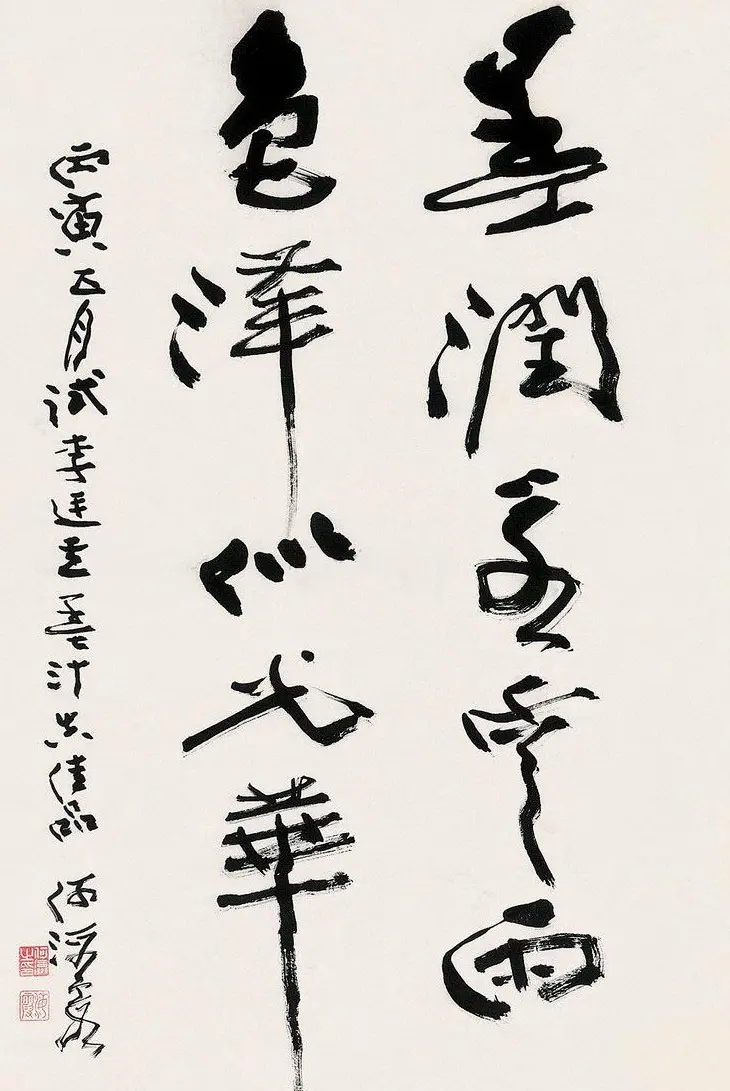 墨潤若雲雨
色澤似光華
丙寅五月試李廷圭墨汁佳品 何海霞